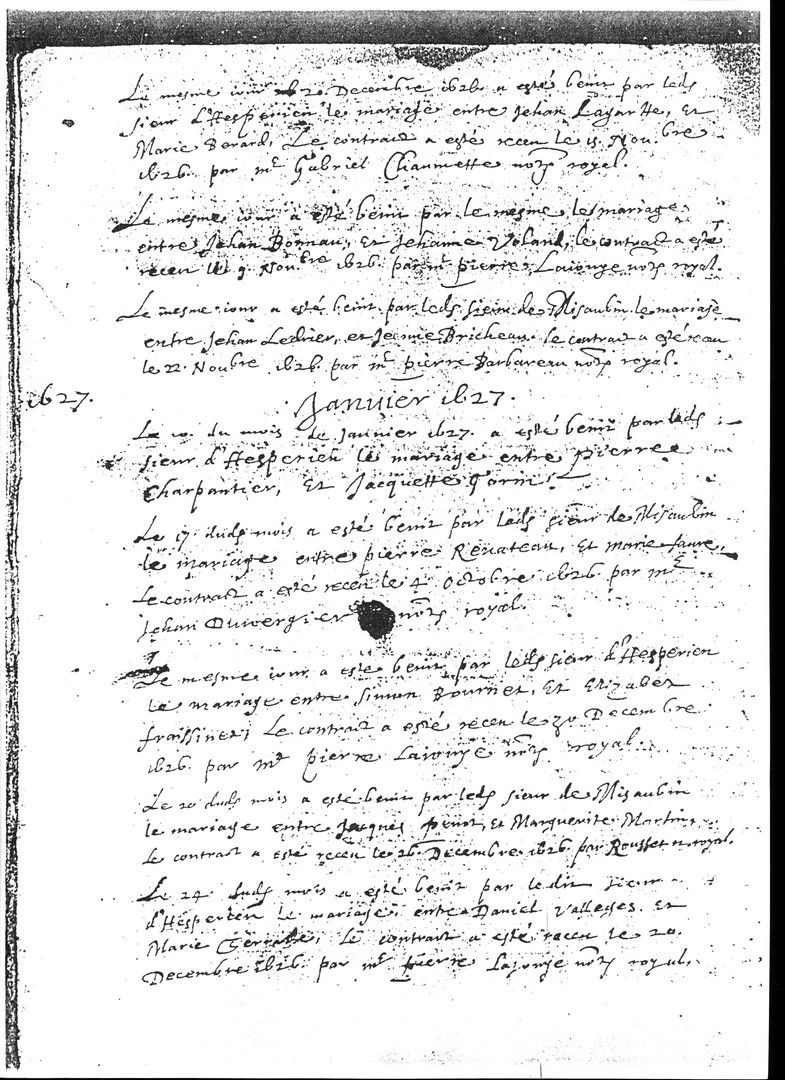 Le mesme iour 20 Decembre 1626 a esté benit par leds
sieur d'Hesperien le mariage entre Jehan Lagarthe, Et
Marie Berard, Le contract a esté receu le 15 Nou.bre
1626. par mr Gabriel Chaumette notre royal.
Le mesme iour a esté benit par le mesme, le mariage
entre Jehan Bonnau, Et Jehanne Voland, le contract a esté
receu le 9. Nou.bre 1626. par mr pierre Laiouye notre royal.
Le mesme iour a esté benit par leds sieur de Misaubin le mariage
entre Jehan Ledrier, et Jeanne Bricheau. le contract a esté receu
le 22. Noubre 1626. par mr pierre Barbareau notre royal.
1627. Januier 1627.
Le 10. du mois de Januier 1627. a esté benit par leds
sieur d'Hesperien le mariage entre pierre
Charpantier, Et Jacquette
Le 17 duds mois a esté benit par leds sieur de Misaubin
le mariage entre pierre Renateau, Et marie faure,
Le contract a esté receu le 4 octobre 1626 par mr
Jehan Duvergier notre royal.
Le mesme iour a esté benit par leds sieur d'Hesperien
le mariage entre Simon Bournet, Et Elizabet
fraissinet; Le contract a esté receu le 20 Decembre
1626. par mr pierre Laiouye notre royal.
Le 20 duds mois a esté benit par leds sieur de Misaubin
le mariage entre Jacques, Et Marguerite Martin,
Le contract a esté receu le 26 Decembre 1626 par Rousset n. royal.
Le 24. duds mois a esté benit par ledit sieur
d'Hesperien le mariage, entre Daniel Valleges. Et
Marie; Le contract a esté receu le 20.
Decembre 1626. par mr pierre Laiouye notre royal,